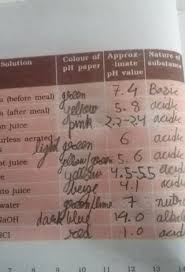 Solution Colour of pH paper Approx-imate pH value Nature of substance
(before meal) green 7.4 Basic
(after meal) yellow 5.8 acidic
juice pink 2.2-2.4 acidic
urless aerated light green 6 acidic
juice yellow/green 5.6 acidic
yellow 4.5-5.5 acidic
juice 4.1 acidic
water green 7
NaOH dark blue 14.0
HCl red 1.0 acidic
7 8 9 10 11 12 13